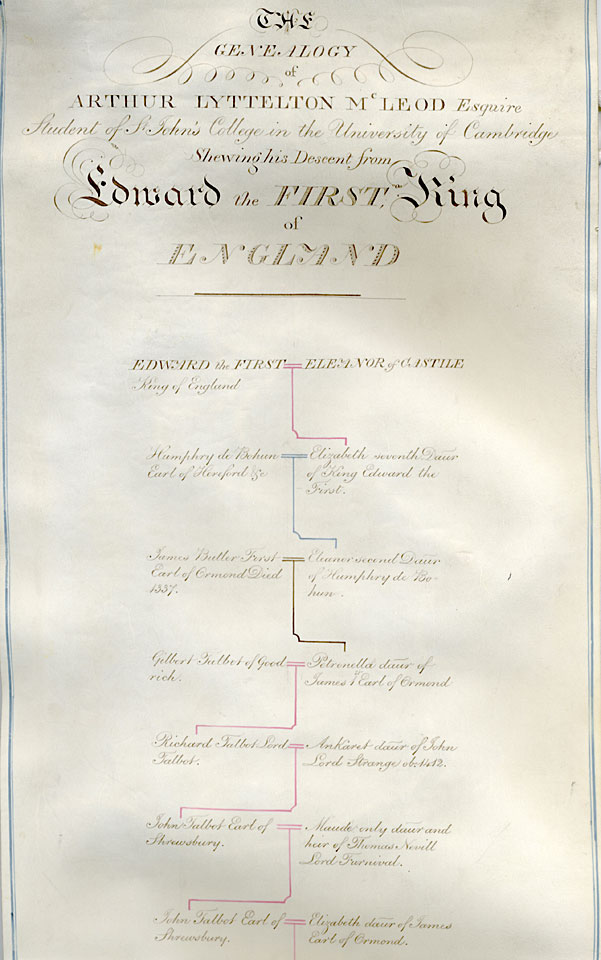 THE
GENEALOGY
of
ARTHUR LYTTELTON McLEOD Esquire
Student of St John's College in the University of Cambridge
Shewing his Descent from
Edward the FIRST, King
of
ENGLAND
EDWARD the FIRST = ELEANOR of CASTILE
King of England
Humphry de Bohun = Elizabeth seventh Daur
Earl of Hereford &c of King Edward the
First.
James Butler First = Eleanor second Daur
Earl of Ormond Died of Humphry de Bo-
1337. hun.
Gilbert Talbot of Good = Petronella daur of
rich. James 1st Earl of Ormond
Richard Talbot Lord = Ankaret daur of John
Talbot. Lord Strange ob: 1412.
John Talbot Earl of = Maude only daur and
Shrewsbury. heir of Thomas Nevill
Lord Furnival.
John Talbot Earl of = Elizabeth daur of James
Shrewsbury. Earl of Ormond.